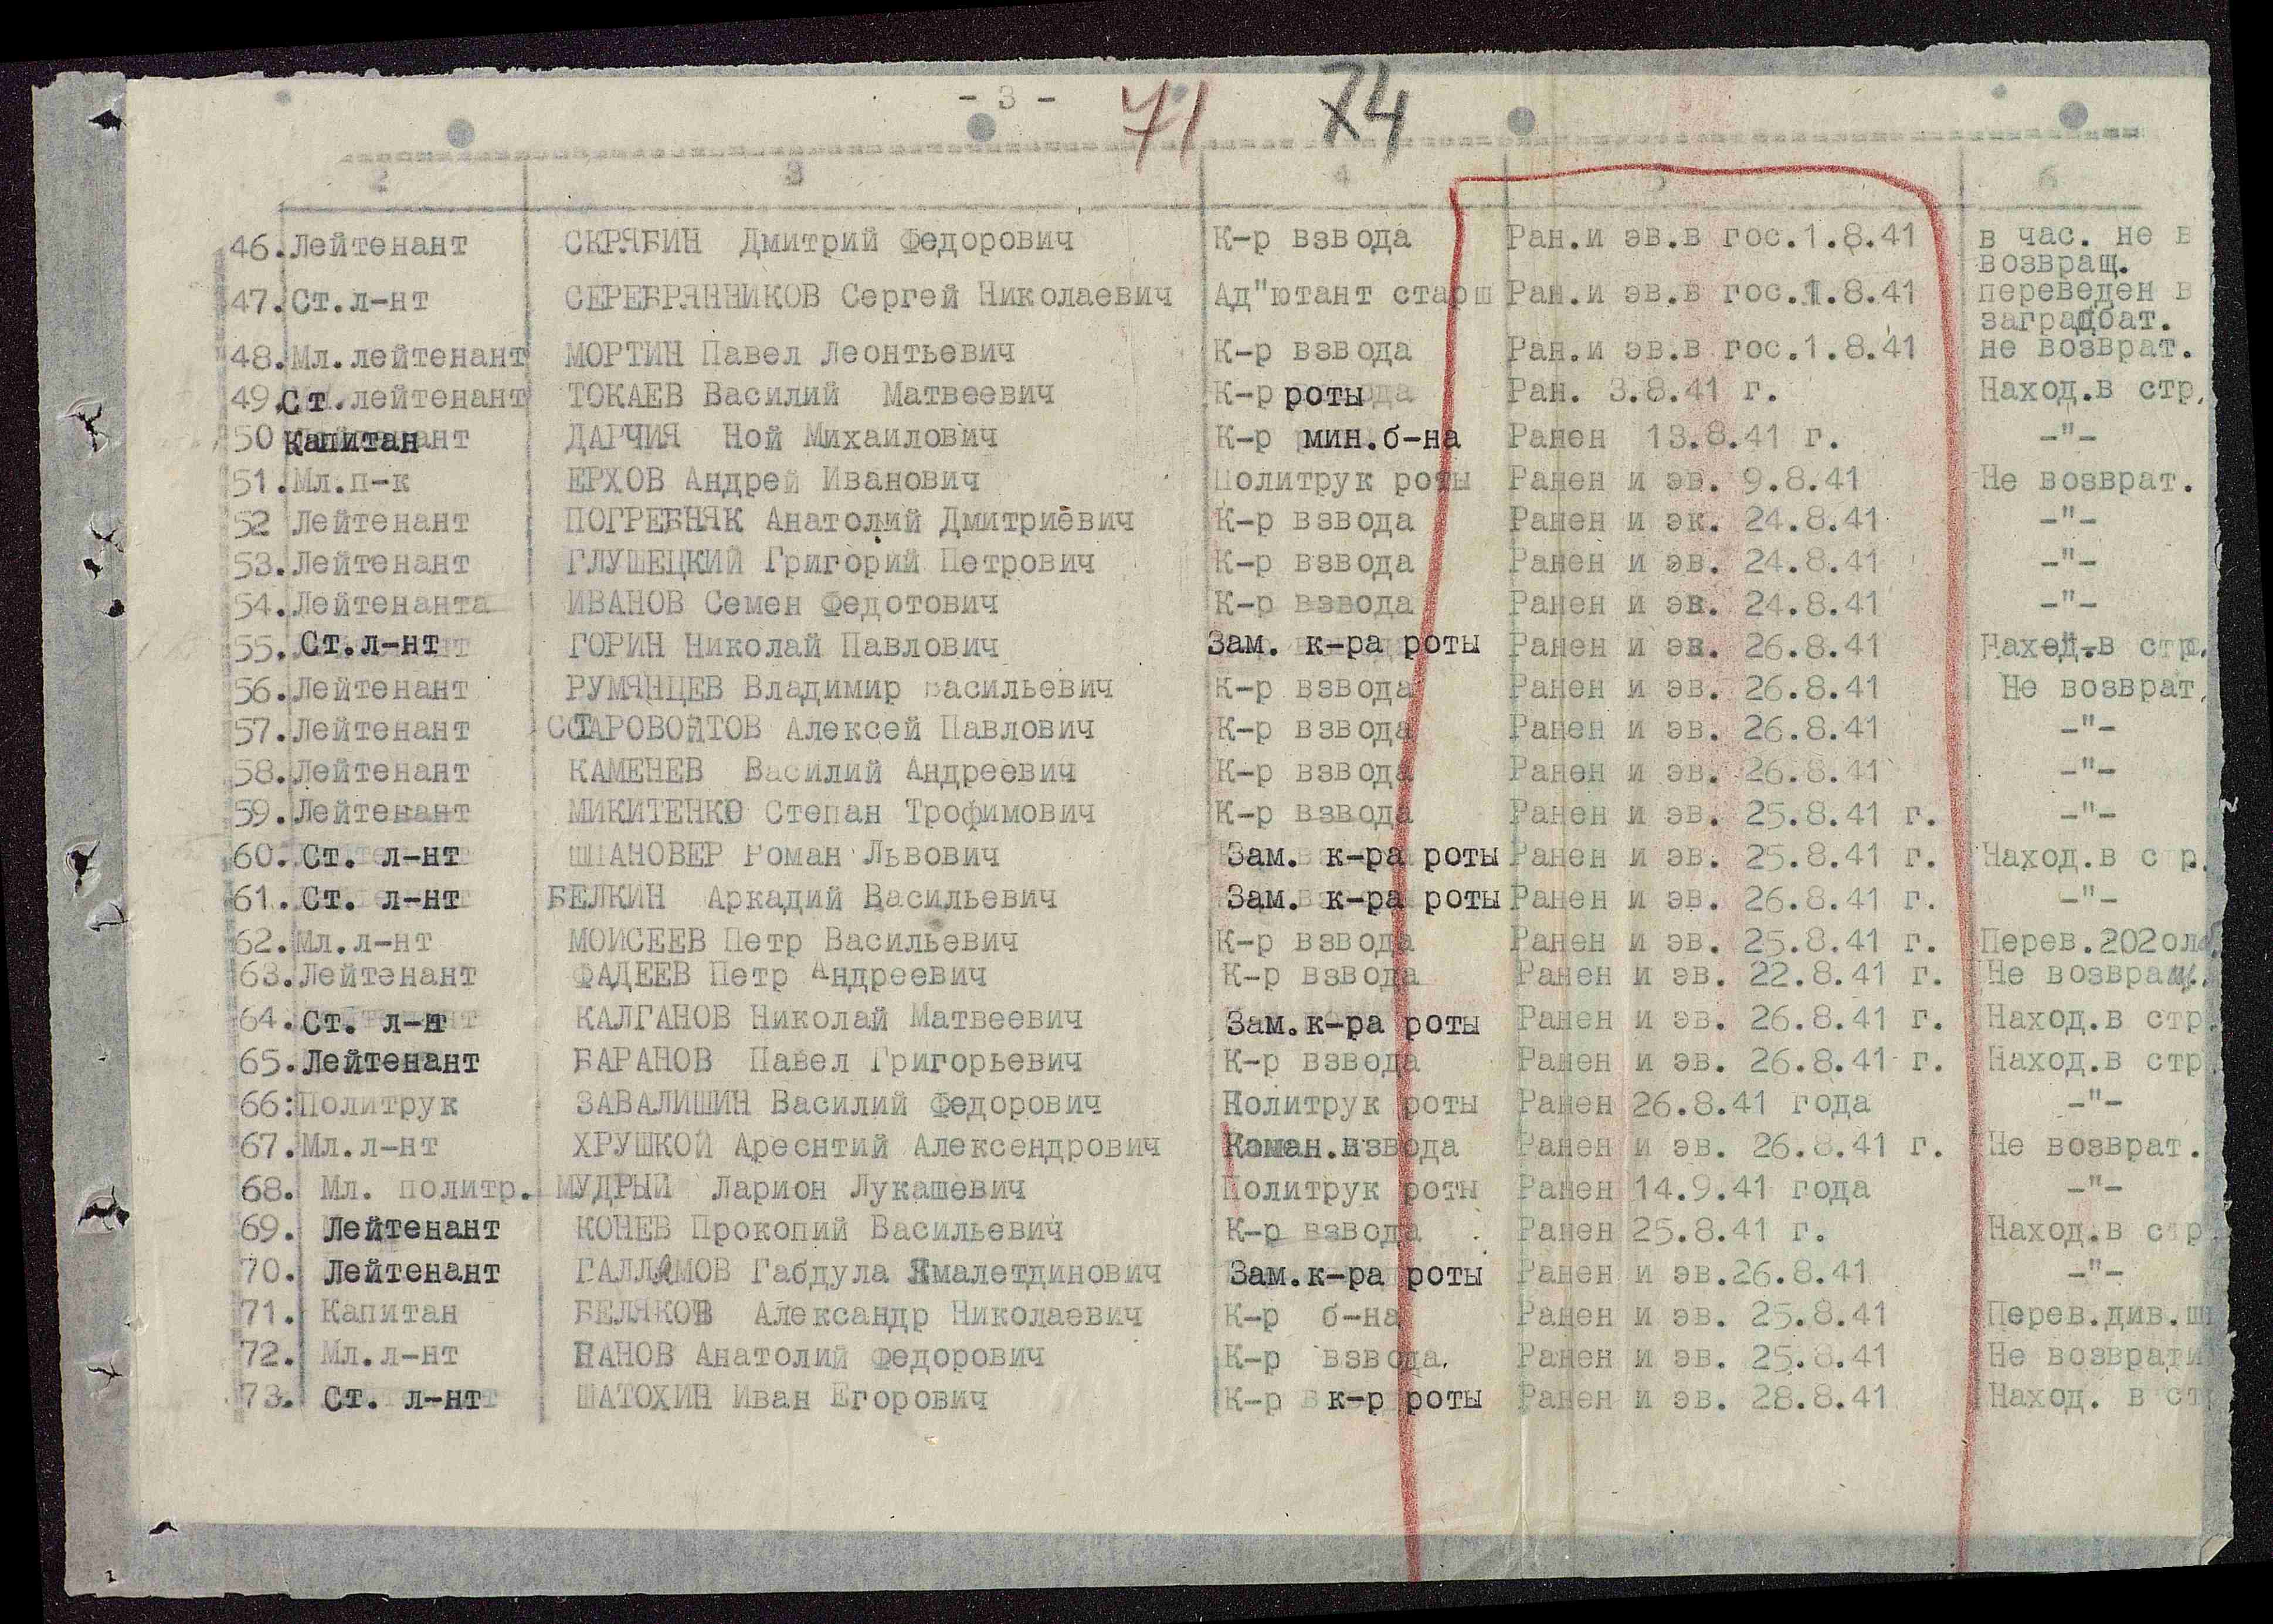 - 3 - 71 74
2 3 4 5 6
46. Лейтенант СКРЯБИН Дмитрий Федорович К-р взвода Ран.и эв.в гос.1.8.41 в час. не в
возвращ.
47. Ст.л-нт СЕРЕБРЯННИКОВ Сергей Николаевич Ад"ютант старш Ран.и эв.в гос.1.8.41 переведен в
заградбат.
48. Мл.лейтенант МОРТИН Павел Леонтьевич К-р взвода Ран.и эв.в гос.1.8.41 не возврат.
49. Ст.лейтенант ТОКАЕВ Василий Матвеевич К-р роты Ран. 3.8.41 г. Наход.в стр.
50 Капитан ДАРЧИЯ Ной Михаилович К-р мин.б-на Ранен 13.8.41 г. -"-
51. Мл.п-к ЕРХОВ Андрей Иванович Политрук роты Ранен и эв. 9.8.41 Не возврат.
52 Лейтенант ПОГРЕБНЯК Анатолий Дмитриевич К-р взвода Ранен и эк. 24.8.41 -"-
53. Лейтенант ГЛУШЕЦКИЙ Григорий Петрович К-р взвода Ранен и эв. 24.8.41 -"-
54. Лейтенанта ИВАНОВ Семен Федотович К-р взвода Ранен и эв. 24.8.41 -"-
55. Ст.л-нт ГОРИН Николай Павлович Зам. к-ра роты Ранен и эв. 26.8.41 Наход.в стр.
56. Лейтенант РУМЯНЦЕВ Владимир Васильевич К-р взвода Ранен и эв. 26.8.41 Не возврат.
57. Лейтенант СТАРОВОЙТОВ Алексей Павлович К-р взвода Ранен и эв. 26.8.41 -"-
58. Лейтенант КАМЕНЕВ Василий Андреевич К-р взвода Ранен и эв. 26.8.41 -"-
59. Лейтенант МИКИТЕНКО Степан Трофимович К-р взвода Ранен и эв. 25.8.41 г. -"-
60. Ст. л-нт ШПАНОВЕР Роман Львович Зам. к-ра роты Ранен и эв. 25.8.41 г. Наход.в с р.
61. Ст. л-нт БЕЛКИН Аркадий Васильевич Зам. к-ра роты Ранен и эв. 26.8.41 г. -"-
62. Мл.л-нт МОИСЕЕВ Петр Васильевич К-р взвода Ранен и эв. 25.8.41 г. Перев.202
63. Лейтенант ФАДЕЕВ Петр Андреевич К-р взвода Ранен и эв. 22.8.41 г. Не возвращ.
64. Ст. л-нт КАЛГАНОВ Николай Матвеевич Зам.к-ра роты Ранен и эв. 26.8.41 г. Наход.в стр.
65. Лейтенант БАРАНОВ Павел Григорьевич К-р взвода Ранен и эв. 26.8.41 г. Наход.в стр
66: Политрук ЗАВАЛИШИН Василий Федорович Политрук роты Ранен 26.8.41 года -"-
67. Мл.л-нт ХРУШКОЙ Ареснтий Алексендрович Коман.взвода Ранен и эв. 26.8.41 г. Не возврат.
68. Мл. политр. МУДРЫЙ Ларион Лукашевич Политрук роты Ранен 14.9.41 года -"-
69. Лейтенант КОНЕВ Прокопий Васильевич К-р взвода Ранен 25.8.41 г. Наход.в с р
70. Лейтенант ГАЛЛЯМОВ Габдула Ямалетдинович Зам.к-ра роты Ранен и эв.26.8.41 -"-
71. Капитан БЕЛЯКОВ Александр Николаевич К-р б-на Ранен и эв. 25.8.41 Перев.див.ш
72. Мл.л-нт ПАНОВ Анатолий Федорович К-р взвода. Ранен и эв. 25.8.41 Не возврати
73. Ст. л-нт ШАТОХИН Иван Егорович К-р к-р роты Ранен и эв. 28.8.41 Наход. в ст